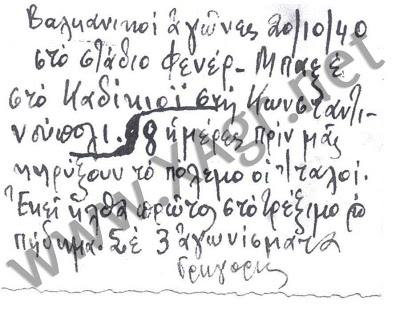 Βαλκανικοί ἀγῶνες 20/10/40
στό στάδιο Φενέρ - Μπαξέ
στό Καδίκιοϊ στή Κωνσταντι-
νούπολι. 8 ἡμέρες πρίν μᾶς
κηρύξουν τό πόλεμο οἱ Ἰταλοί.
Ἐκεῖ ἦλθα πρῶτος στό τρέξιμο
πήδημα. Σέ 3 ἀγωνίσματα
Γρηγόρης
www.YAgr.net